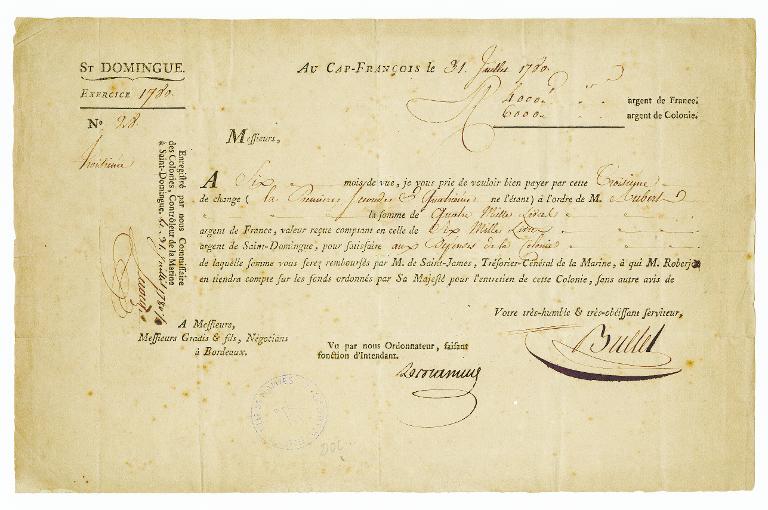 ST DOMINGUE.
EXERCICE 1780.
No 28.
troisieme
AU CAP-FRANÇOIS le 31. Juillet 1780.
4000.  argent de France.
6000.  argent de Colonie.
Meſſieurs,
A Six mois de vue, je vous prie de vouloir bien payer par cette Troisieme
de change ( la Premiere, Seconde & Quatrieme ne l'étant) à l'ordre de M. Aubert
la ſomme de Quatre Mille Livres
argent de France, valeur reçue comptant en celle de Six Mille Livres
argent de Saint-Domingue, pour ſatisfaire aux Dépenses de la Colonie
de laquelle ſomme vous ſerez rembourſés par M. de Saint-James, Tréſorier-Général de la Marine, à qui M. Roberjot
en tiendra compte ſur les fonds ordonnés par Sa Majeſté pour l'entretien de cette Colonie, ſans autre avis de
Votre très-humble & très-obéiſſant ſerviteur,
Bullet
Enregiſtré par nous Commiſſaire
des Colonies, Contrôleur de la Marine
à Saint-Domingue. le 31 Juillet 1780
A Meſſieurs,
Meſſieurs Gradis & fils, Négocians
à Bordeaux.
Vu par nous Ordonnateur, faiſant
fonction d'Intendant.